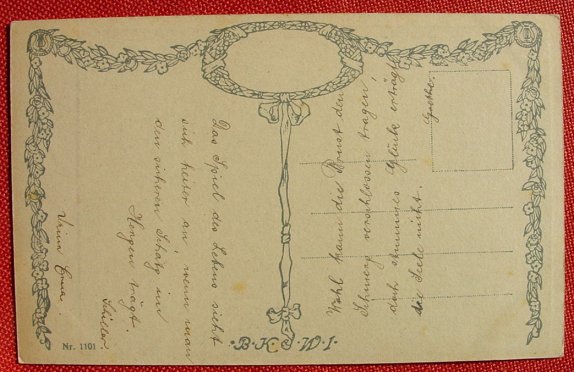 Das Spiel des Lebens sieht
sich heiter an, wenn man
den sicheren Schatz im
Herzen trägt.
Schiller.
Erna.
Wohl kann die Brust den
Schmerz verschlossen tragen,
doch stummes Glück erträgt
die Seele nicht.
Goethe.
Nr. 1101
B.K.W.I.